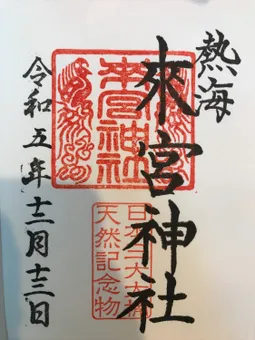 熱海
來宮神社
來宮神社
天然記念物
令和五年十二月十三日